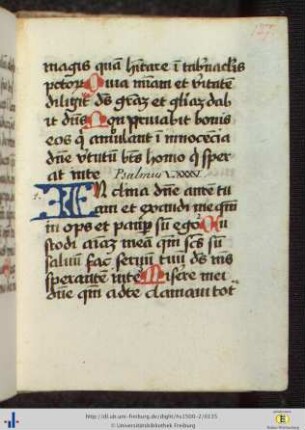 177.
magis quã hĩtare ĩ tab̃naclis
pctor̃ Quia mĩam et ũitatem
diligit ds̃ grãz et gl̃iaz dab
it dñs Non privabit bonis
eos q̃ ambulant ĩ innocẽcia
dñe v̾tutũ bt̃s homo q̃ sper
at in te Psalmus LXXXV.
INclina dñe aurem tu
am et exaudi me qm̃
inops et paup̃ sũ ego Cu
stodi aiaz meã qm̃ sc̃s sũ
salvum fac servum tuũ ds̃ ms̃
sperantem in te Miserere mei
dñe qm̃ ad te clamavi tot
http://dl.ub.uni-freiburg.de/diglit/hs1500-2/0035
© Universitätsbibliothek Freiburg